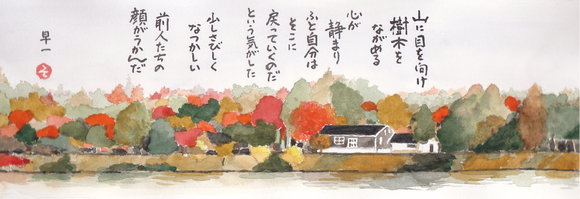 山に目を向け
樹木を
ながめる
心が
静まり
ふと自分は
そこに
戻っていくのだ
という気がした
少しさびしく
なつかしい
前人たちの
顔がうかんだ
早一
そ